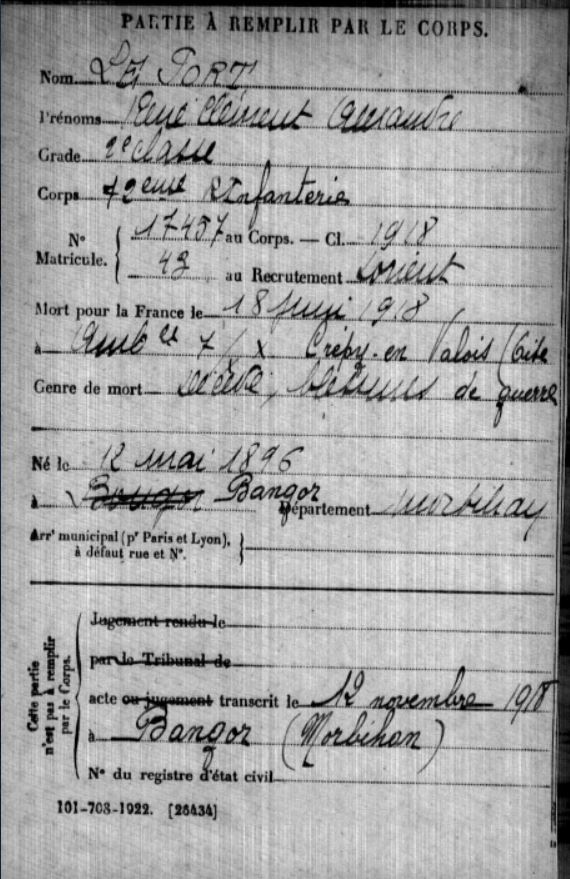 PARTIE À REMPLIR PAR LE CORPS.
Nom LE PORT
Prénoms René Clément Alexandre
Grade 2e classe
Corps 72eme R Infanterie
N° Matricule. { 17457 au Corps. — Cl. 1918
43 au Recrutement Lorient
Mort pour la France le 18 Juin 1918
à Amb ce 7/X Crépy-en Valois (Oise
Genre de mort décédé, blessures de guerre
Né le 12 mai 1896
à Bangor Département Morbihan
Arrt municipal (pr Paris et Lyon), à défaut rue et N°. }
Cette partie n'est pas à remplir par le Corps.
Jugement rendu le
par le Tribunal de
acte ou jugement transcrit le 12 novembre 1918
à Bangor (Morbihan)
N° du registre d'état civil
101-708-1922. [26434]